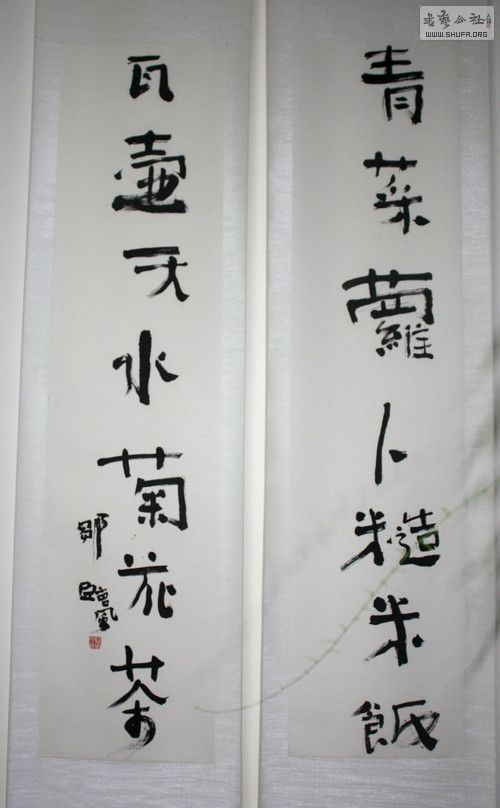 書藝公社
WWW.SHUFA.ORG
青菜蘿卜糙米飯
瓦壺天水菊花茶